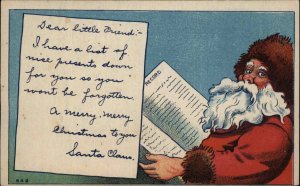 Dear little Friend:-
I have a list of
nice presents down
for you so you
won't be forgotten.
A merry, merry
Christmas to you
Santa Claus.
RECORD